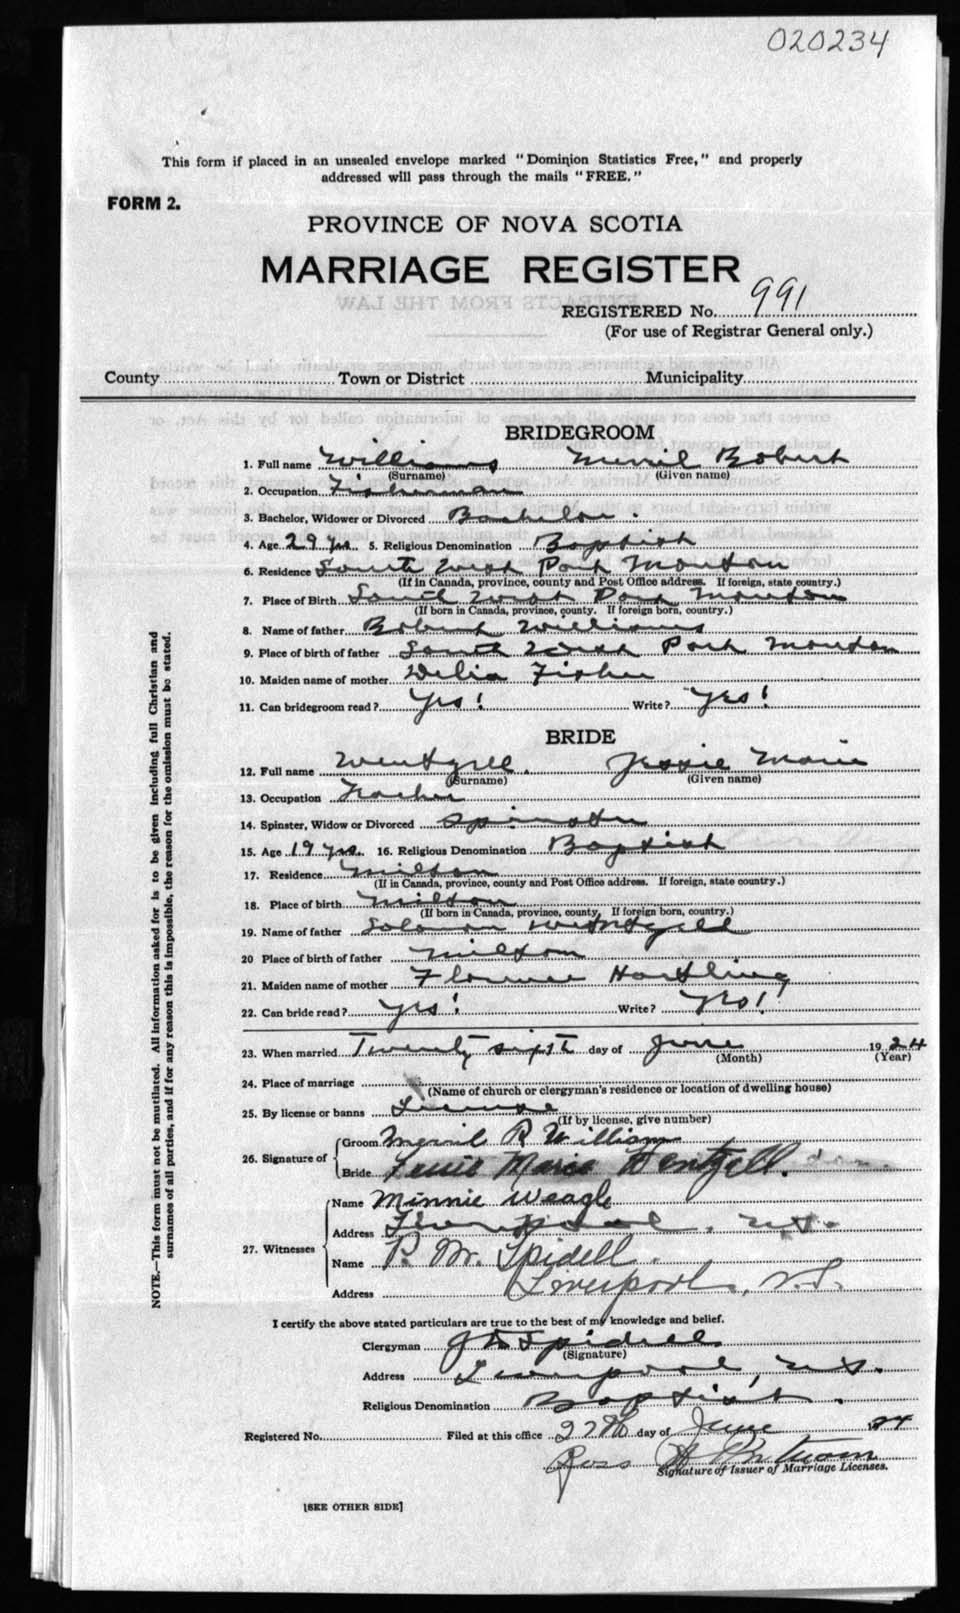 020234
This form if placed in an unsealed envelope marked "Dominion Statistics Free," and properly
addressed will pass through the mails "FREE."
FORM 2.
PROVINCE OF NOVA SCOTIA
MARRIAGE REGISTER
REGISTERED No. 991
(For use of Registrar General only.)
County Town or District Municipality
BRIDEGROOM
1. Full name Williams Merril Robert
(Surname) (Given name)
2. Occupation Fisherman
3. Bachelor, Widower or Divorced Bachelor.
4. Age 29 yrs. 5. Religious Denomination Baptist
6. Residence South West Port Mouton
(If in Canada, province, county and Post Office address. If foreign, state country.)
7. Place of Birth South West Port Mouton
(If born in Canada, province, county. If foreign born, country.)
8. Name of father Robert Williams
9. Place of birth of father South West Port Mouton
10. Maiden name of mother Delia Fisher
11. Can bridegroom read? Yes! Write? Yes!
BRIDE
12. Full name Wentzell. Jessie Marie
(Surname) (Given name)
13. Occupation Teacher
14. Spinster, Widow or Divorced Spinster
15. Age 19 yrs. 16. Religious Denomination Baptist
17. Residence Milton
(If in Canada, province, county and Post Office address. If foreign, state country.)
18. Place of birth Milton
(If born in Canada, province, county, If foreign born, country.)
19. Name of father Solomon Wentzell
20 Place of birth of father Milton
21. Maiden name of mother Florence Hartling
22. Can bride read? Yes! Write? Yes!
23. When married Twenty sixth day of June 1924
(Month) (Year)
24. Place of marriage
(Name of church or clergyman's residence or location of dwelling house)
25. By license or banns License
(If by license, give number)
26. Signature of Groom Merril R Williams
Bride Jessie Marie Wentzell.
27. Witnesses Name Minnie Weagle
Address Liverpool, N.S.
Name R. W. Spidell.
Address Liverpool, N.S.
I certify the above stated particulars are true to the best of my knowledge and belief.
Clergyman Spidell
(Signature)
Address Liverpool, N.S.
Religious Denomination Baptist.
Registered No. Filed at this office 27th day of June 1924
Ross
Signature of Issuer of Marriage Licenses.
[SEE OTHER SIDE]
NOTE.—This form must not be mutilated. All information asked for is to be given including full Christian and
surnames of all parties, and if for any reason this is impossible, the reason for the omission must be stated.